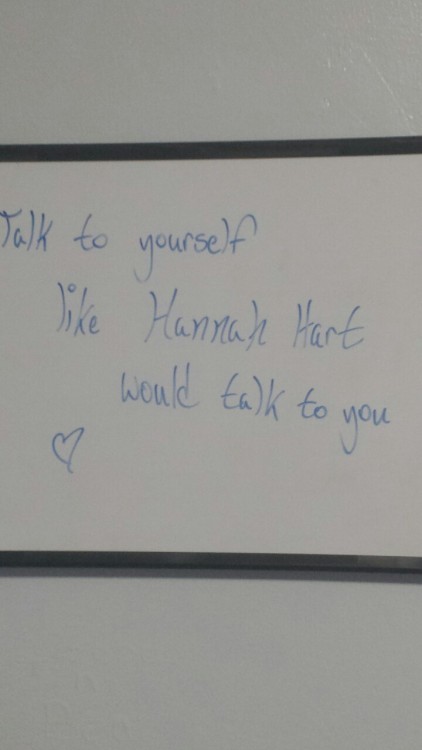 Talk to yourself
like Hannah Hart
would talk to you